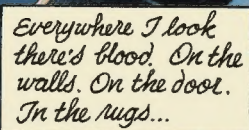 Everywhere I look
there's blood. On the
walls. On the door.
In the rugs...